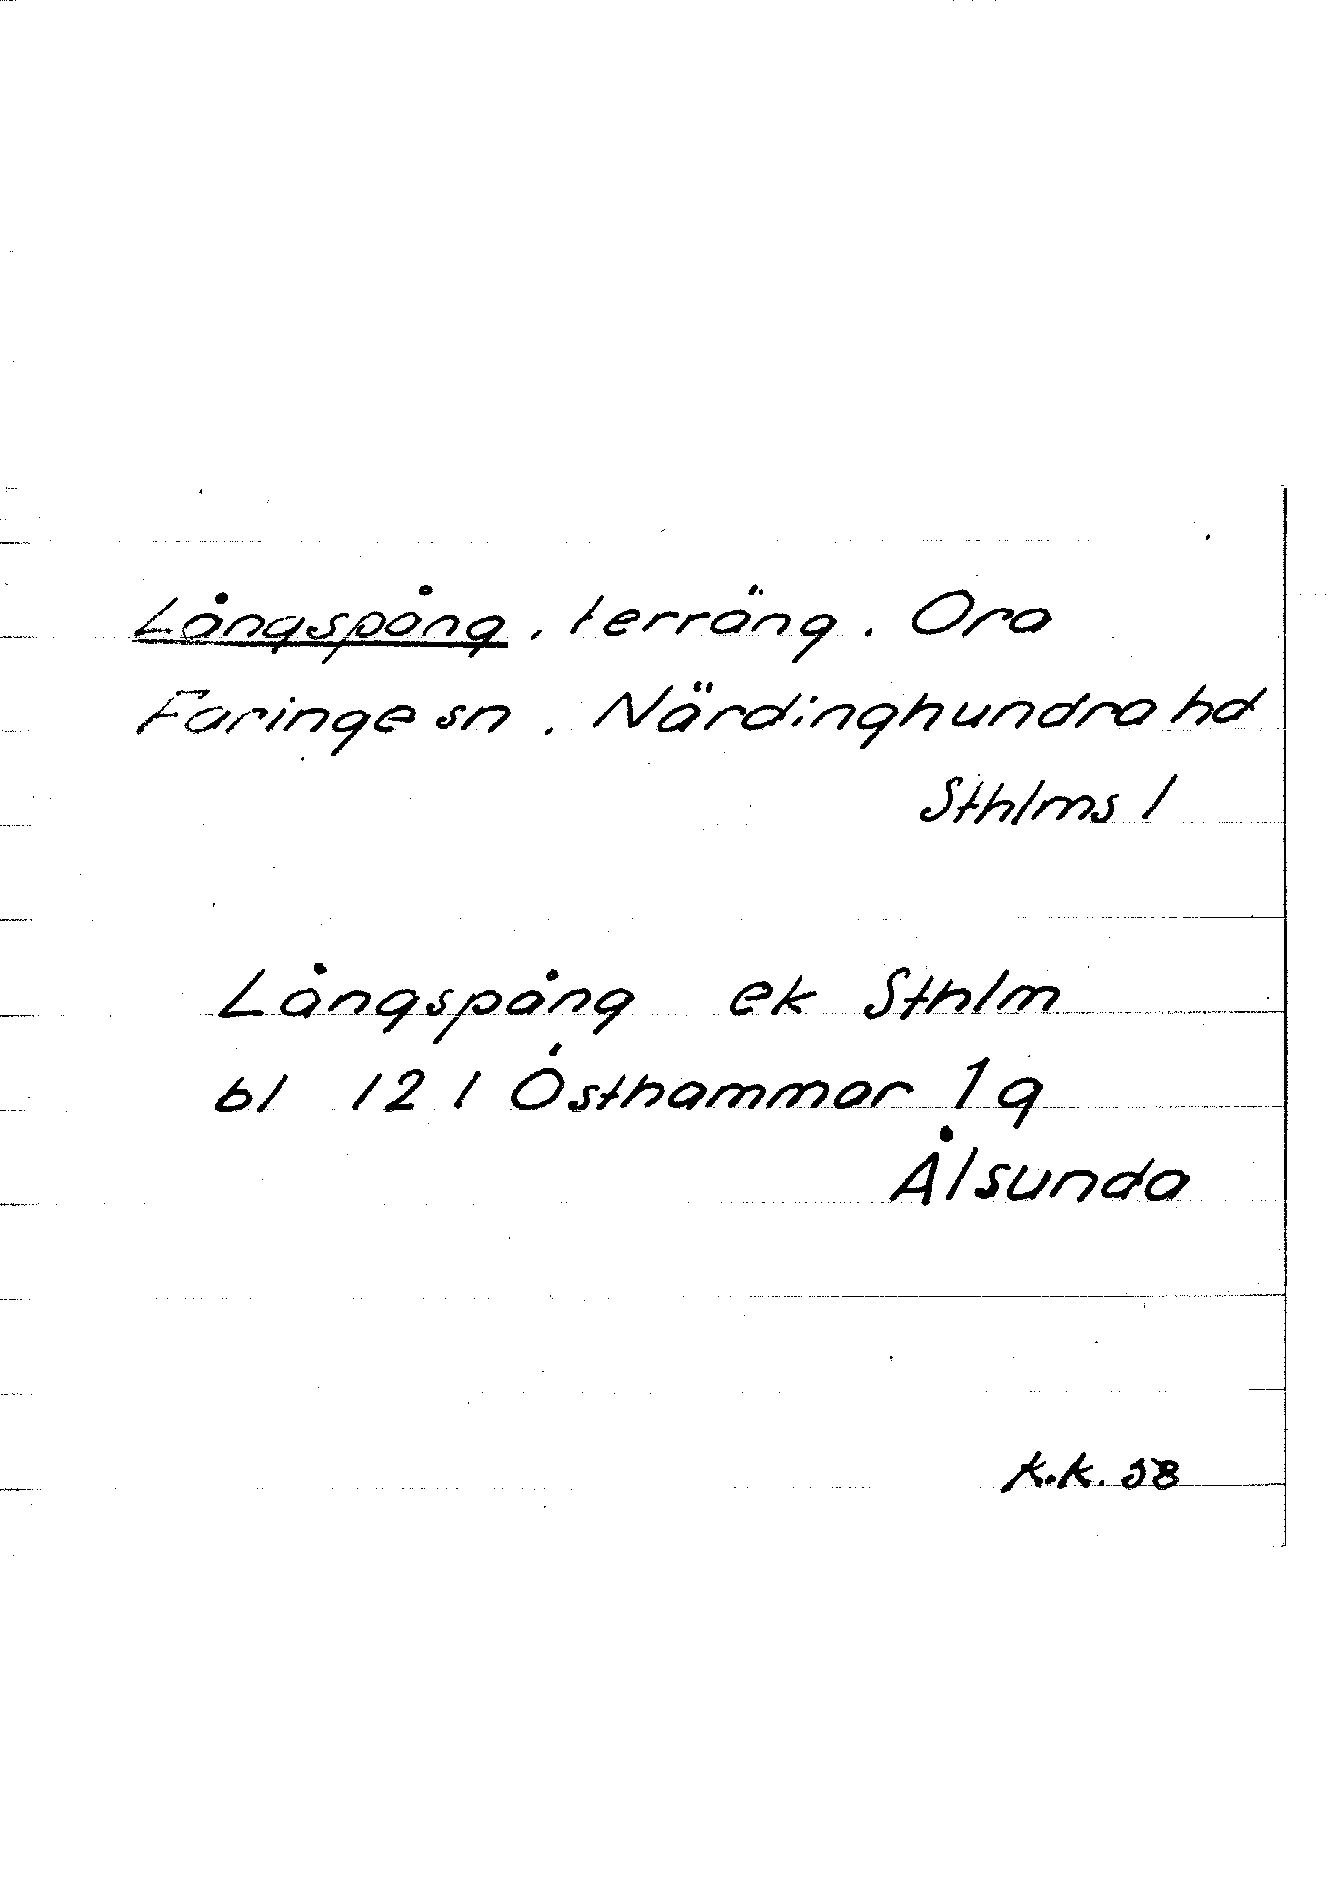 Långspång, terräng. Ora
Faringe sn. Närdinghundra hd
Sthlms l
Långspång ek Sthlm
bl 12 I Östhammar 1g
Ålsunda
K.K. 58